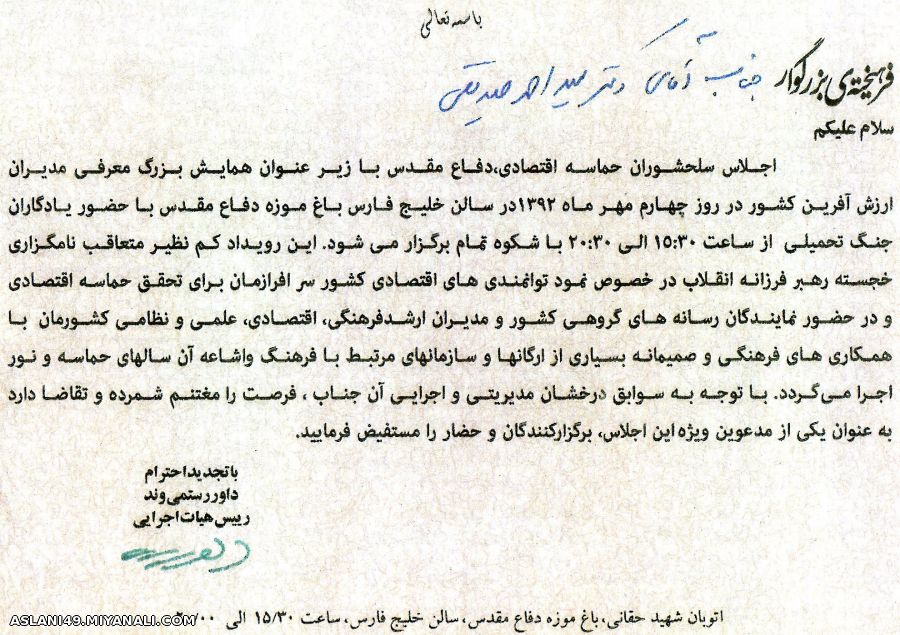 باسمه تعالی
فرهیخته‌ی بزرگوار جناب آقای دکتر سید احمد صدیقی
سلام علیکم
اجلاس سلحشوران حماسه اقتصادی،دفاع مقدس با زیر عنوان همایش بزرگ معرفی مدیران
ارزش آفرین کشور در روز چهارم مهر ماه ۱۳۹۲در سالن خلیج فارس باغ موزه دفاع مقدس با حضور یادگاران
جنگ تحمیلی از ساعت ۱۵:۳۰ الی ۲۰:۳۰ با شکوه تمام برگزار می شود. این رویداد کم نظیر متعاقب نامگزاری
خجسته رهبر فرزانه انقلاب در خصوص نمود توانمندی های اقتصادی کشور سر افرازمان برای تحقق حماسه اقتصادی
و در حضور نمایندگان رسانه های گروهی کشور و مدیران ارشدفرهنگی، اقتصادی، علمی و نظامی کشورمان با
همکاری های فرهنگی و صمیمانه بسیاری از ارگانها و سازمانهای مرتبط با فرهنگ واشاعه آن سالهای حماسه و نور
اجرا می‌گردد. با توجه به سوابق درخشان مدیریتی و اجرایی آن جناب ، فرصت را مغتنم شمرده و تقاضا دارد
به عنوان یکی از مدعوین ویژه این اجلاس، برگزارکنندگان و حضار را مستفیض فرمایید.
با تجدید احترام
داور رستمی وند
رییس هیات اجرایی
اتوبان شهید حقانی، باغ موزه دفاع مقدس، سالن خلیج فارس، ساعت ۱۵/۳۰ الی
ASLANI49.MIYANALI.COM